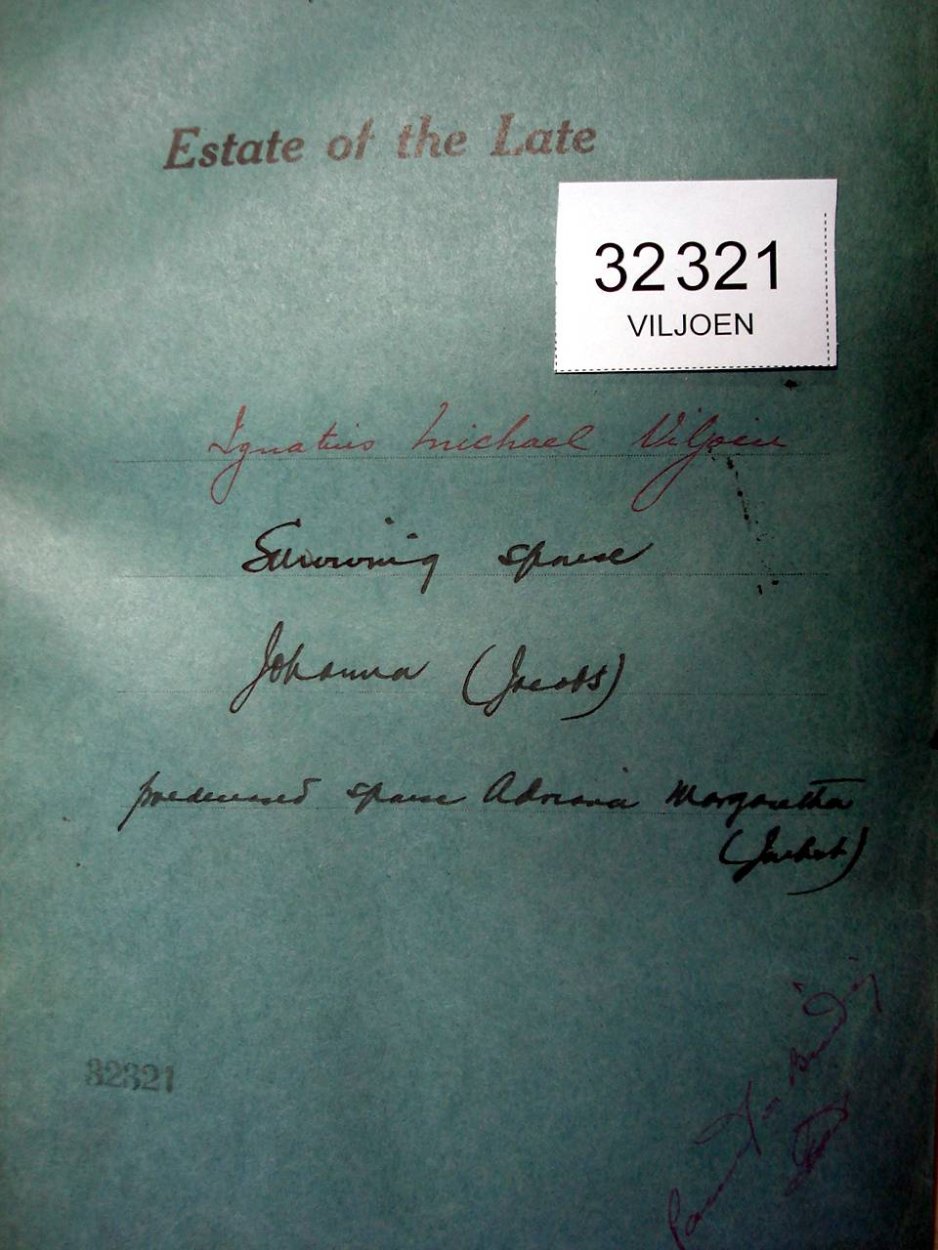 Estate of the Late
32321
VILJOEN
Ignatius Michael Viljoen
Surviving spouse
Johanna (Jacobs)
predeceased spouse Adriana Margaretha
32321
for Binding